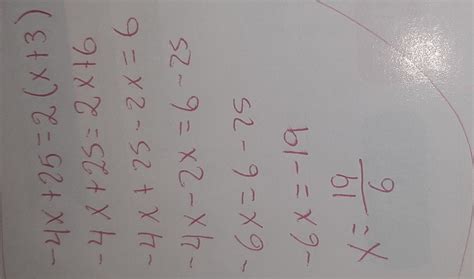 -4x+25=2(x+3)
-4x+25=2x+6
-4x+25-2x=6
-4x-2x=6-25
-6x=6-25
-6x=-19
x=19/6